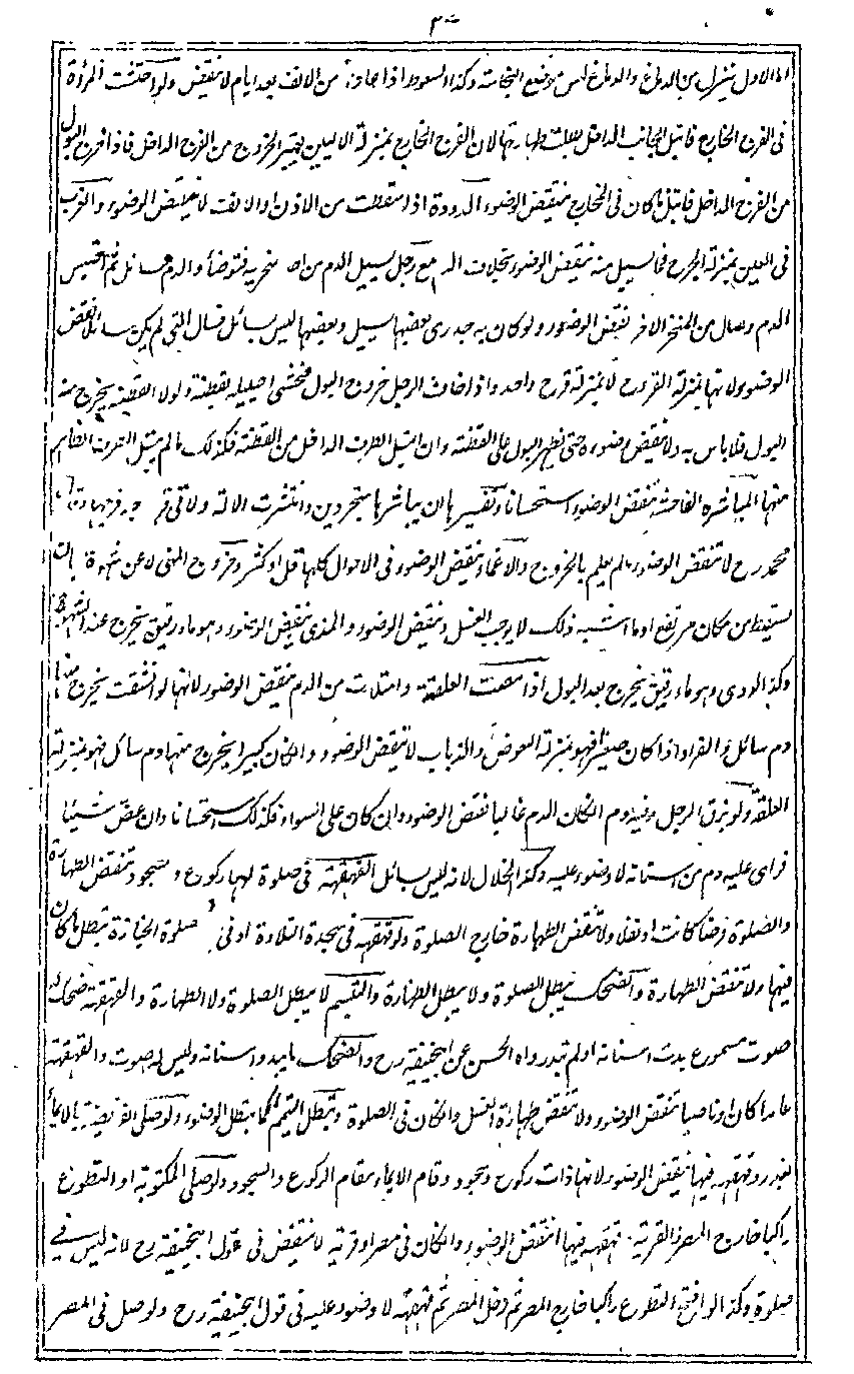 ٣٠
الاول ينزل من الدماغ والدماغ ليس موضع النجاسة وكذا السعوط اذا عاد من الانف بعد ايام لا ينقض ولو احتشت المرأة
فى الفرج الخارج فابتل الجانب الداخل بطلت طهارتها لان الفرج الخارج بمنزلة الاليين يعتبر الخروج من الفرج الداخل فاذا خرج البول
من الفرج الداخل فابتل ما كان فى الخارج ينتقض الوضوء الدودة اذا سقطت من الاذن او الانف لا ينقض الوضوء والغرب
فى العين بمنزلة الجرح فما يسيل منه ينقض الوضوء بخلاف الدمع رجل يسيل الدم من احد منخريه فتوضأ والدم سائل ثم احتبس
الدم وسال من المنخر الآخر نقض الوضوء ولو كان به جدرى بعضها يسيل وبعضها ليس بسائل فسال التى لم يكن سائلا نقض
الوضوء لانها بمنزلة القروح لا بمنزلة قرح واحد واذا خاف الرجل خروج البول فحشى احليله بقطنة ولولا القطنة يخرج منه
البول فلا باس به ولا ينتقض وضوءه حتى يظهر البول على القطنة وان ابتل الطرف الداخل من القطنة فكذلك ما لم يبتل الطرف الظاهر
منها المباشرة الفاحشة تنقض الوضوء استحسانا وتفسيرها ان يباشرها متجردين وانتشرت الآلة ولاقى فرجه فرجها وقال
محمد رح لا تنقض الوضوء ما لم يعلم بالخروج والاغماء ينقض الوضوء فى الاحوال كلها قل او كثر وخروج المنى لا عن شهوة بان
يسقط من مكان مرتفع او ما اشبه ذلك لا يوجب الغسل وينقض الوضوء والمذى ينقض الوضوء وهو ماء رقيق يخرج عند الشهوة
وكذا الودى وهو ماء رقيق يخرج بعد البول اذا مصت العلقة وامتلات من الدم ينقض الوضوء لانها لو انشقت يخرج منها
دم سائل والقراد اذا كان صغيرا فهو بمنزلة البعوض والذباب لا ينقض الوضوء وان كان كبيرا يخرج منها دم سائل فهو بمنزلة
العلقة ولو بزق الرجل وفيه دم ان كان الدم غالبا نقض الوضوء وان كان على السواء فكذلك استحسانا وان عض شيئا
فراى عليه دم من اسنانه لا وضوء عليه وكذا الخلال لانه ليس بسائل القهقهة فى صلوة لها ركوع وسجود تنقض الطهارة
والصلوة فرضا كانت او نفلا ولا تنقض الطهارة خارج الصلوة ولو قهقه فى سجدة التلاوة او فى صلوة الجنازة تبطل ما كان
فيها ولا تنقض الطهارة والضحك يبطل الصلوة ولا يبطل الطهارة والتبسم لا يبطل الصلوة ولا الطهارة والقهقهة ضحك له
صوت مسموع بدت اسنانه او لم تبد رواه الحسن عن ابيحنيفة رح والضحك ما يبدو اسنانه وليس له صوت والقهقهة
عامدا كان او ناسيا تنقض الوضوء ولا تنقض طهارة الغسل وان كان فى الصلوة وتبطل التيمم كما تبطل الوضوء ولو صلى الفريضة بالايماء
بعذر وقهقه فيها ينقض الوضوء لانها ذات ركوع وسجود وقام الايماء مقام الركوع والسجود ولو صلى المكتوبة او التطوع
راكبا خارج المصر او القرية فقهقه فيها انتقض الوضوء وان كان فى مصر او قرية لا ينتقض فى قول ابيحنيفة رح لانه ليس فى
صلوة وكذا لو افتتح التطوع راكبا خارج المصر ثم دخل المصر ثم قهقه لا وضوء عليه فى قول ابيحنيفة رح ولو صلى فى المصر